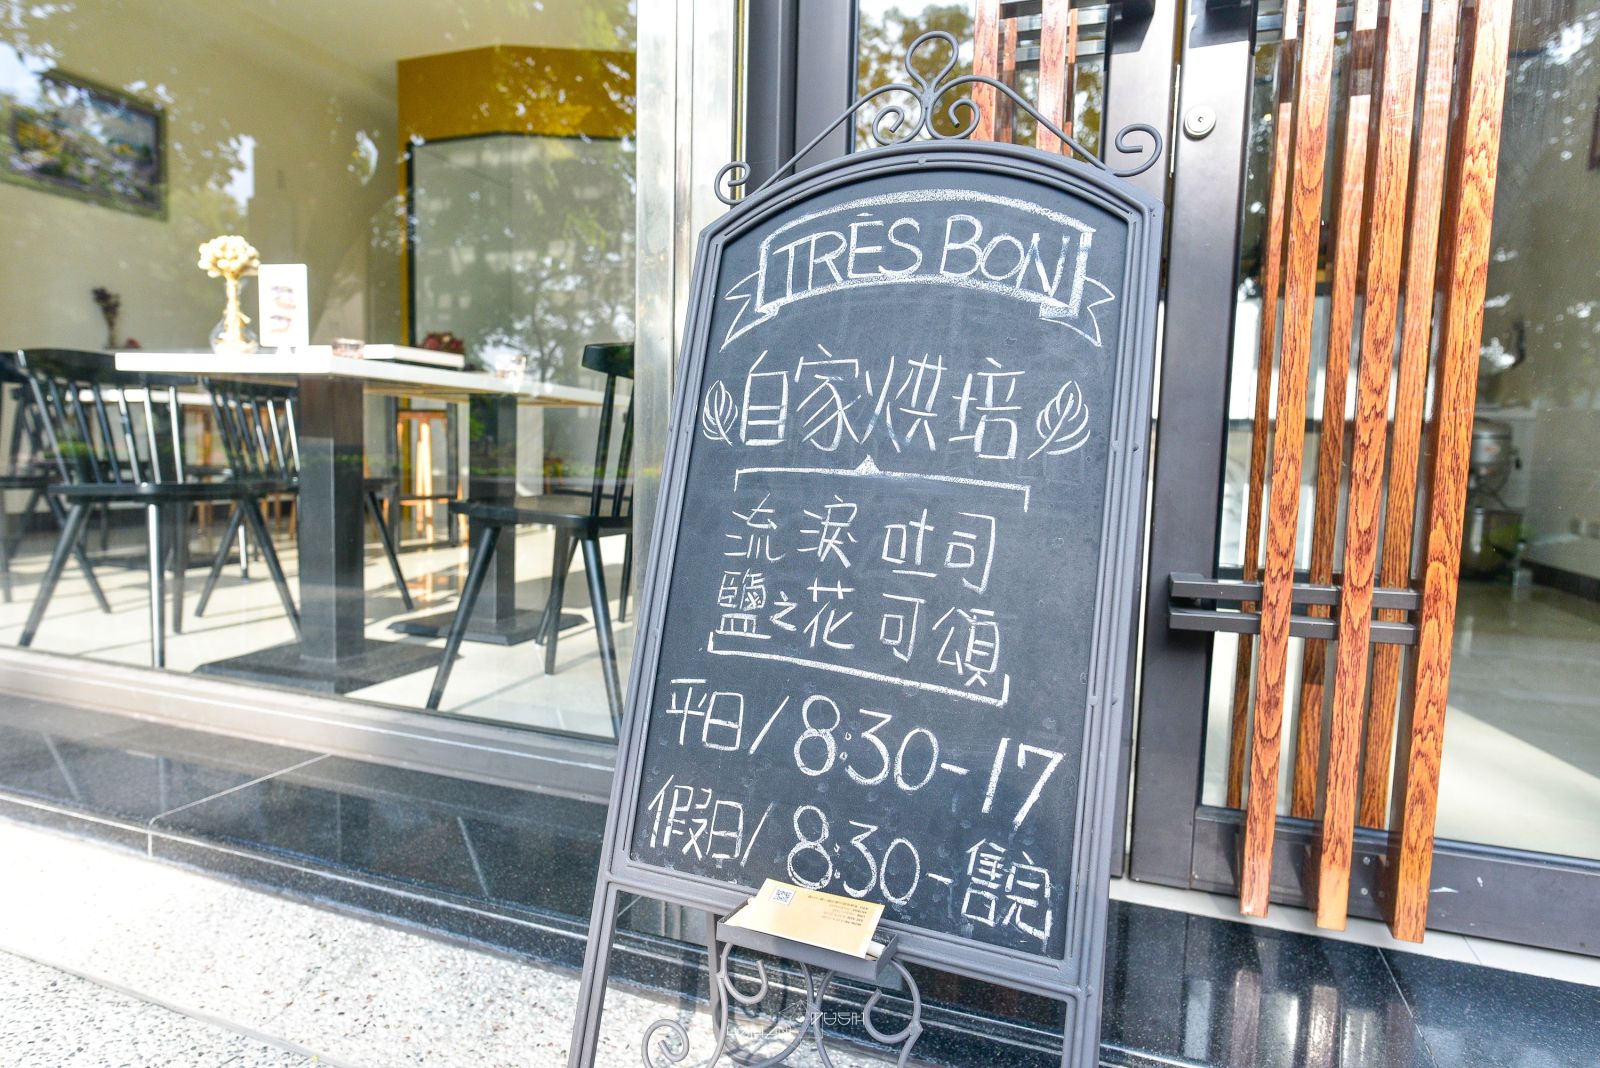 TRÈS BON
自家烘培
流淚吐司
鹽之花可頌
平日/8:30-17
假日/8:30-售完